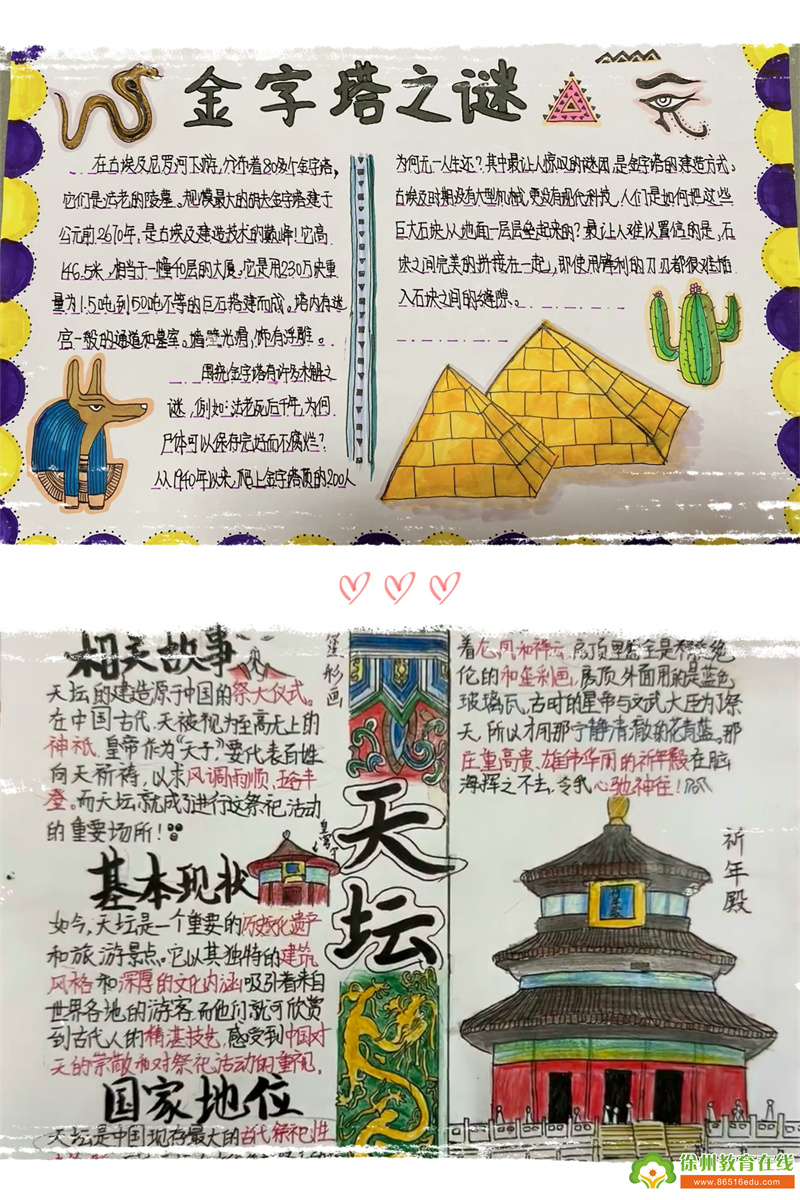 金字塔之谜
在古埃及尼罗河下游,分布着80多个金字塔,
它们是法老的陵墓。规模最大的胡夫金字塔建于
公元前2670年,是古埃及建造技术的巅峰!它高
146.5米,相当于一幢40层的大厦。它是用230万块重
量为1.5吨到50吨不等的巨石搭建而成。塔内有迷
宫一般的通道和墓室。墙壁光滑,饰有浮雕。
围绕金字塔有许多未解之
谜,例如:法老死后千年,为何
尸体可以保存完好而不腐烂?
从1940年以来,爬上金字塔顶的200人
为何无一人生还?其中最让人惊叹的谜团,是金字塔的建造方式。
古埃及时期没有大型机械,更没有现代科技,人们是如何把这些
巨大石块从地面一层层垒起来的?最让人难以置信的是,石
块之间完美的拼接在一起,即使用锋利的刀刃都很难插
入石块之间的缝隙。
相关故事
天坛的建造源于中国的祭天仪式。
在中国古代,天被视为至高无上的
神祇,皇帝作为“天子”,要代表百姓
向天祈祷,以求风调雨顺、五谷丰
登。而天坛,就成了进行这祭祀活动
的重要场所!
基本现状
如今,天坛是一个重要的历史文化遗产
和旅游景点。它以其独特的建筑
风格和深厚的文化内涵吸引着来自
世界各地的游客,而他们就可欣赏
到古代人的精湛技艺,感受到中国对
天的崇敬和对祭祀活动的重视。
国家地位
天坛是中国现存最大的古代祭祀性
玺彩画
天坛
着龙凤和祥云,殿顶里
伦的和玺彩画,殿顶外面用的是蓝色
玻璃瓦,古时的皇帝与文武大臣为了祭
天,所以才用那宁静清澈的花青蓝。那
庄重高贵、雄伟华丽的祈年殿在脑
海挥之不去,令我心驰神往!
祈年殿
徐州教育在线
www.86516edu.com